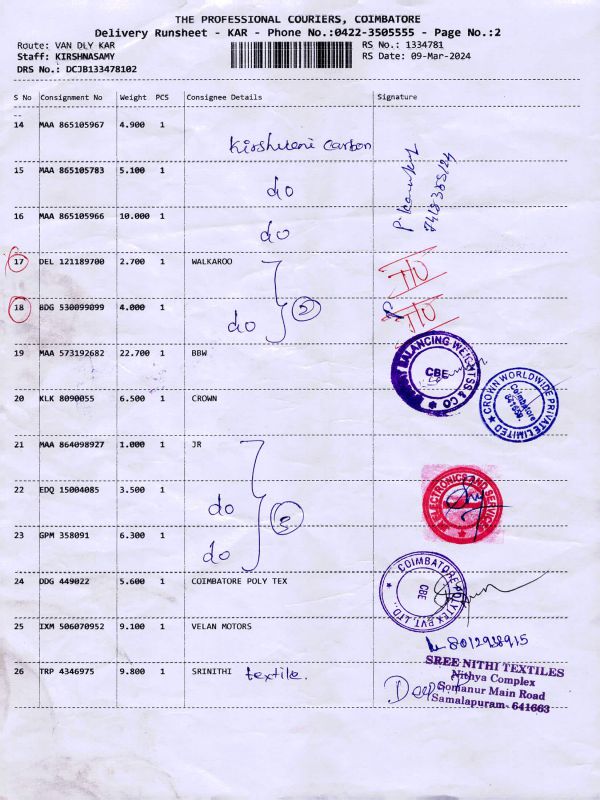 THE PROFESSIONAL COURIERS, COIMBATORE
Delivery Runsheet - KAR - Phone No.:0422-3505555 - Page No.:2
Route: VAN DLY KAR
RS No.: 1334781
Staff: KIRSHNASAMY
RS Date: 09-Mar-2024
DRS No.: DCJB133478102
S No Consignment No Weight PCS Consignee Details Signature
--
14 MAA 865105967 4.900 1
Carbon
15 MAA 865105783 5.100 1
do
16 MAA 865105966 10.000 1
do
17 DEL 121189700 2.700 1 WALKAROO
18 BDG 530099099 4.000 1
do 2
19 MAA 573192682 22.700 1 BBW
BALANCING WEIGHTSS & CO
CBE
20 KLK 8090055 6.500 1 CROWN
CROWN WORLDWIDE PRIVATE LIMITED
Coimbatore
641659.
21 MAA 864098927 1.000 1 JR
22 EDQ 15004085 3.500 1
do 3
ELECTRONICS AND SERVICES
23 GPM 358091 6.300 1
do
24 DDG 449022 5.600 1 COIMBATORE POLY TEX
COIMBATORE POLYTEX PVT. LTD.
CBE
25 IXM 506070952 9.100 1 VELAN MOTORS
26 TRP 4346975 9.800 1 SRINITHI textile.
SREE NITHI TEXTILES
Nithya Complex
Somanur Main Road
Samalapuram- 641663